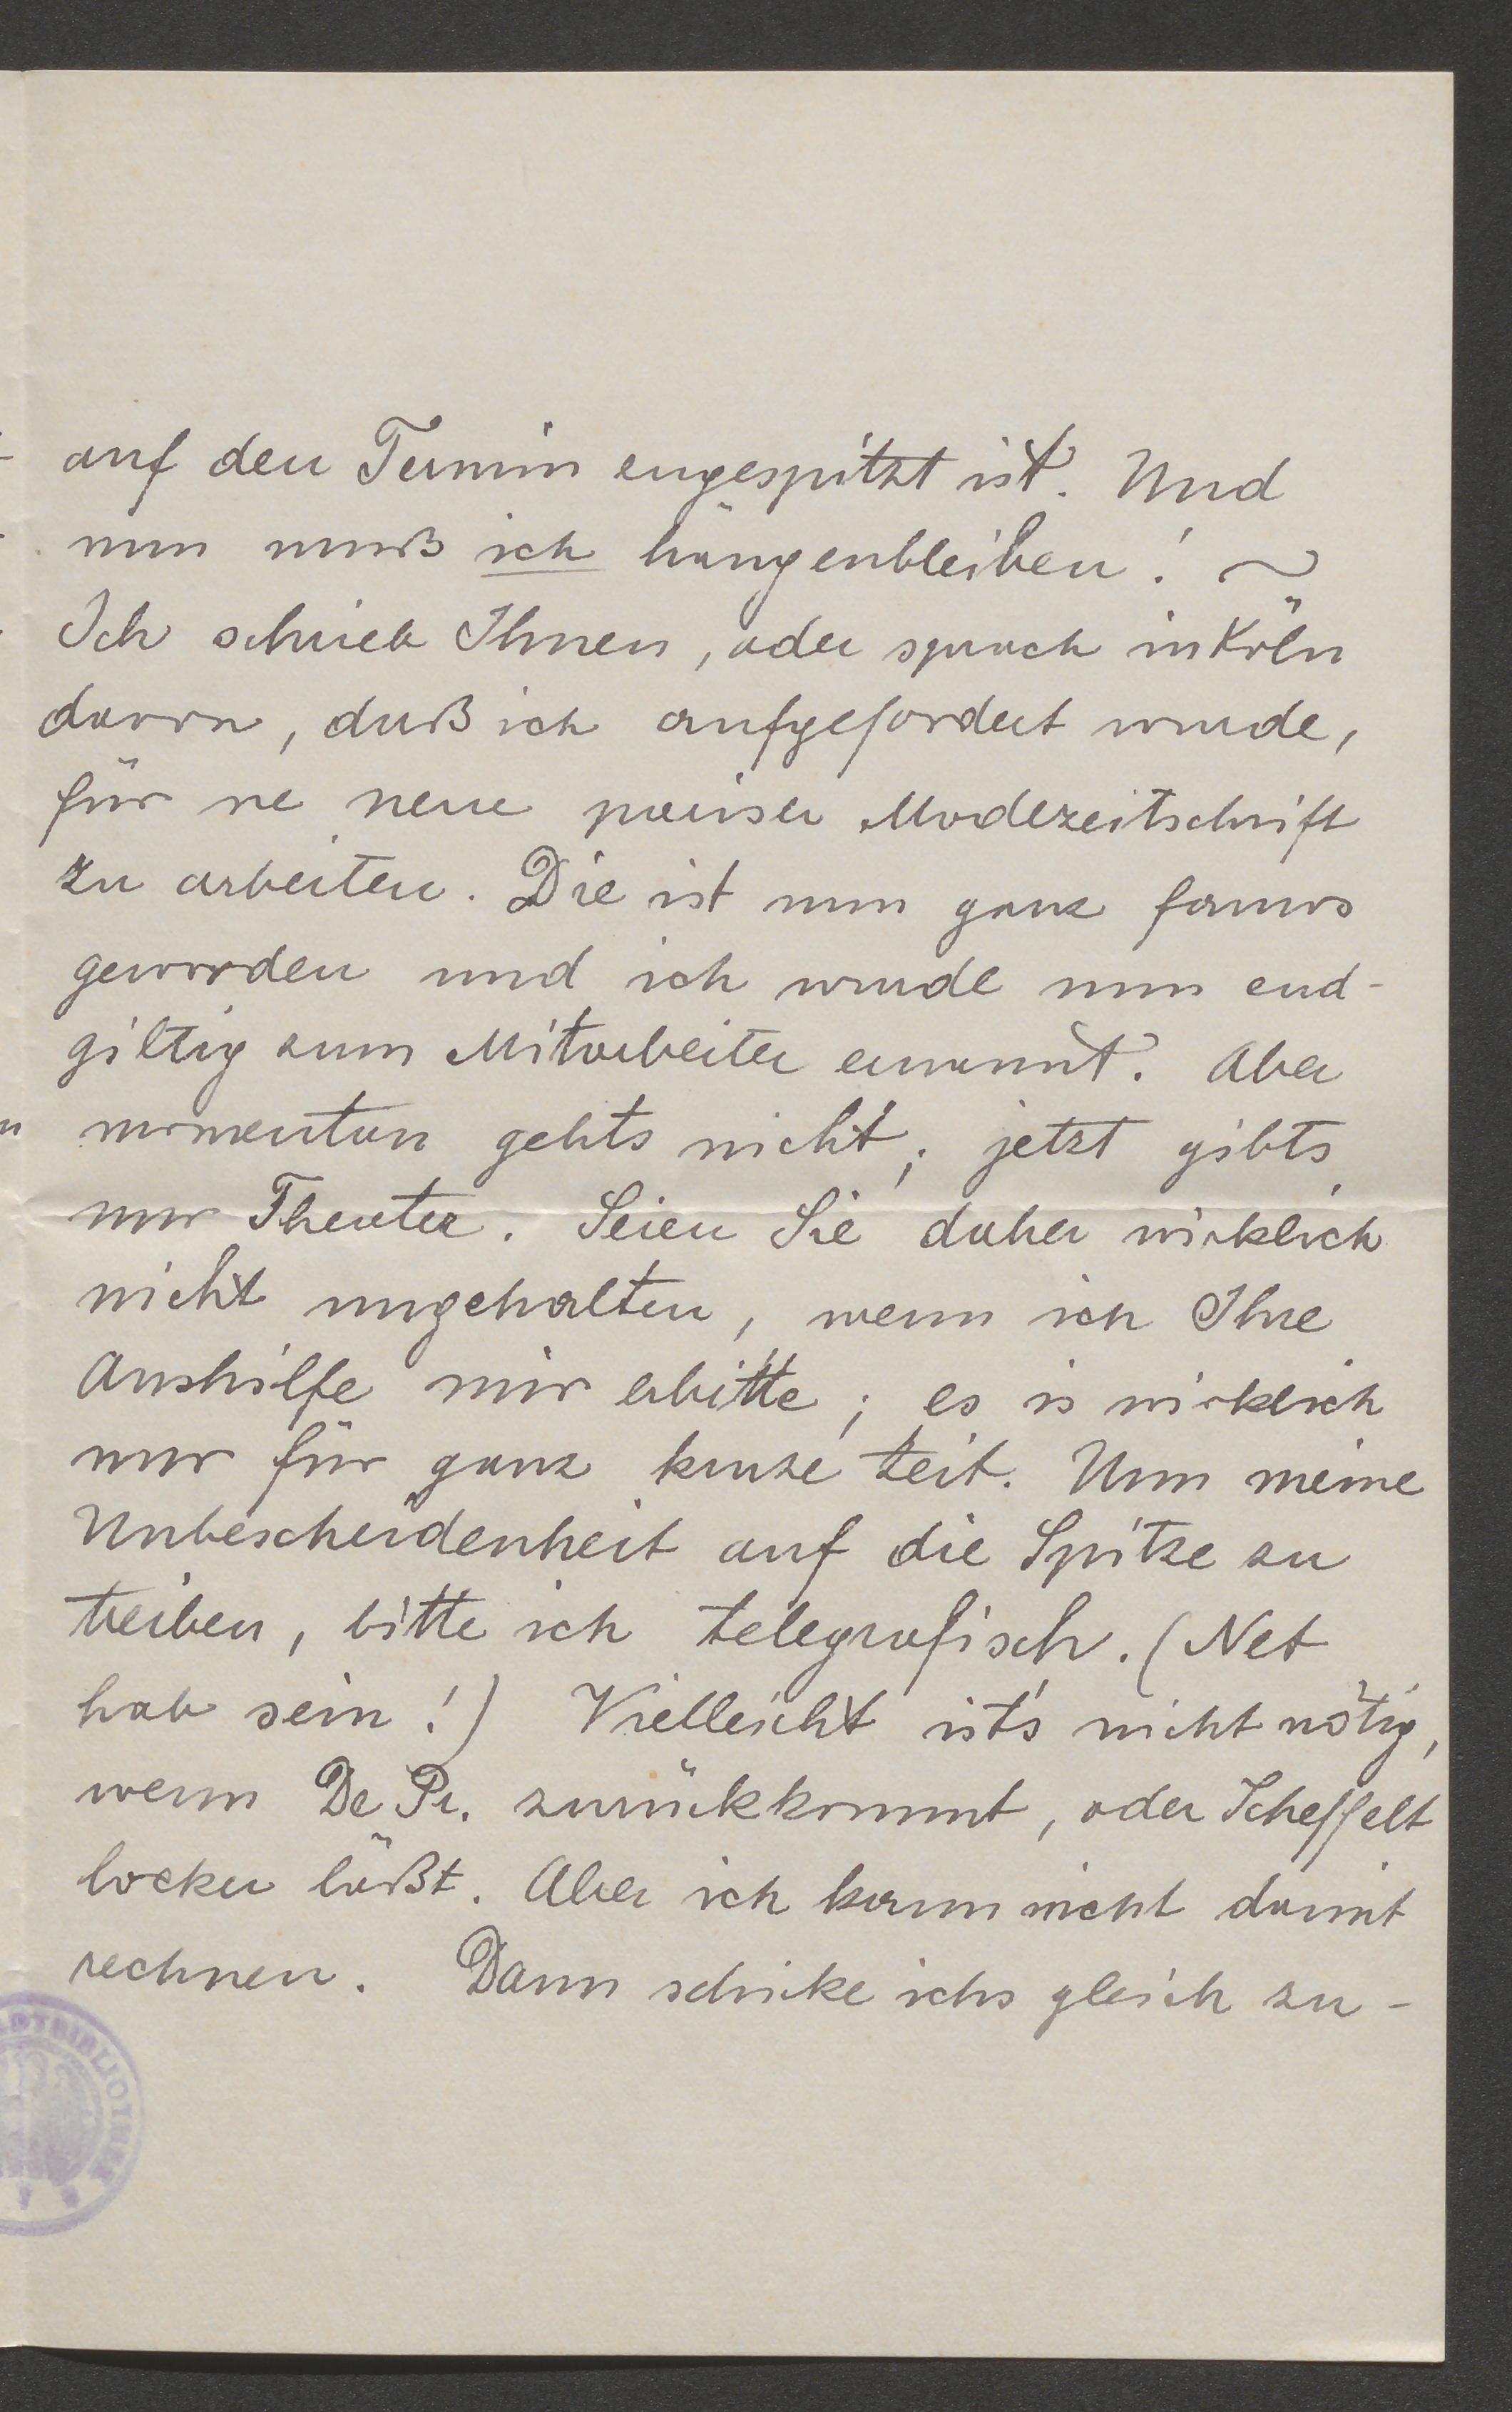 auf den Termin engespitzt ist. Und
nun muß ich hängenbleiben! ~
Ich schrieb Ihnen, oder sprach in Köln
davon, daß ich aufgefordert wurde,
für ne neue pariser Modezeitschrift
zu arbeiten. Die ist nun ganz famos
geworden und ich wurde nun end-
giltig zum Mitarbeiter ernannt. Aber
momentan gehts nicht; jetzt gibts
nur Theater. Seien Sie daher wirklich
nicht ungehalten, wenn ich Ihre
Aushilfe mir erbitte; es is wirklich
nur für ganz kurze Zeit. Um meine
Unbescheidenheit auf die Spitze zu
treiben, bitte ich telegrafisch. (Net
hab sein!) Vielleicht ist's nicht nötig,
wenn De Pr. zurückkommt, oder Scheffelt
locker läßt. Aber ich kann nicht damit
rechnen. Dann schicke ichs gleich zu-